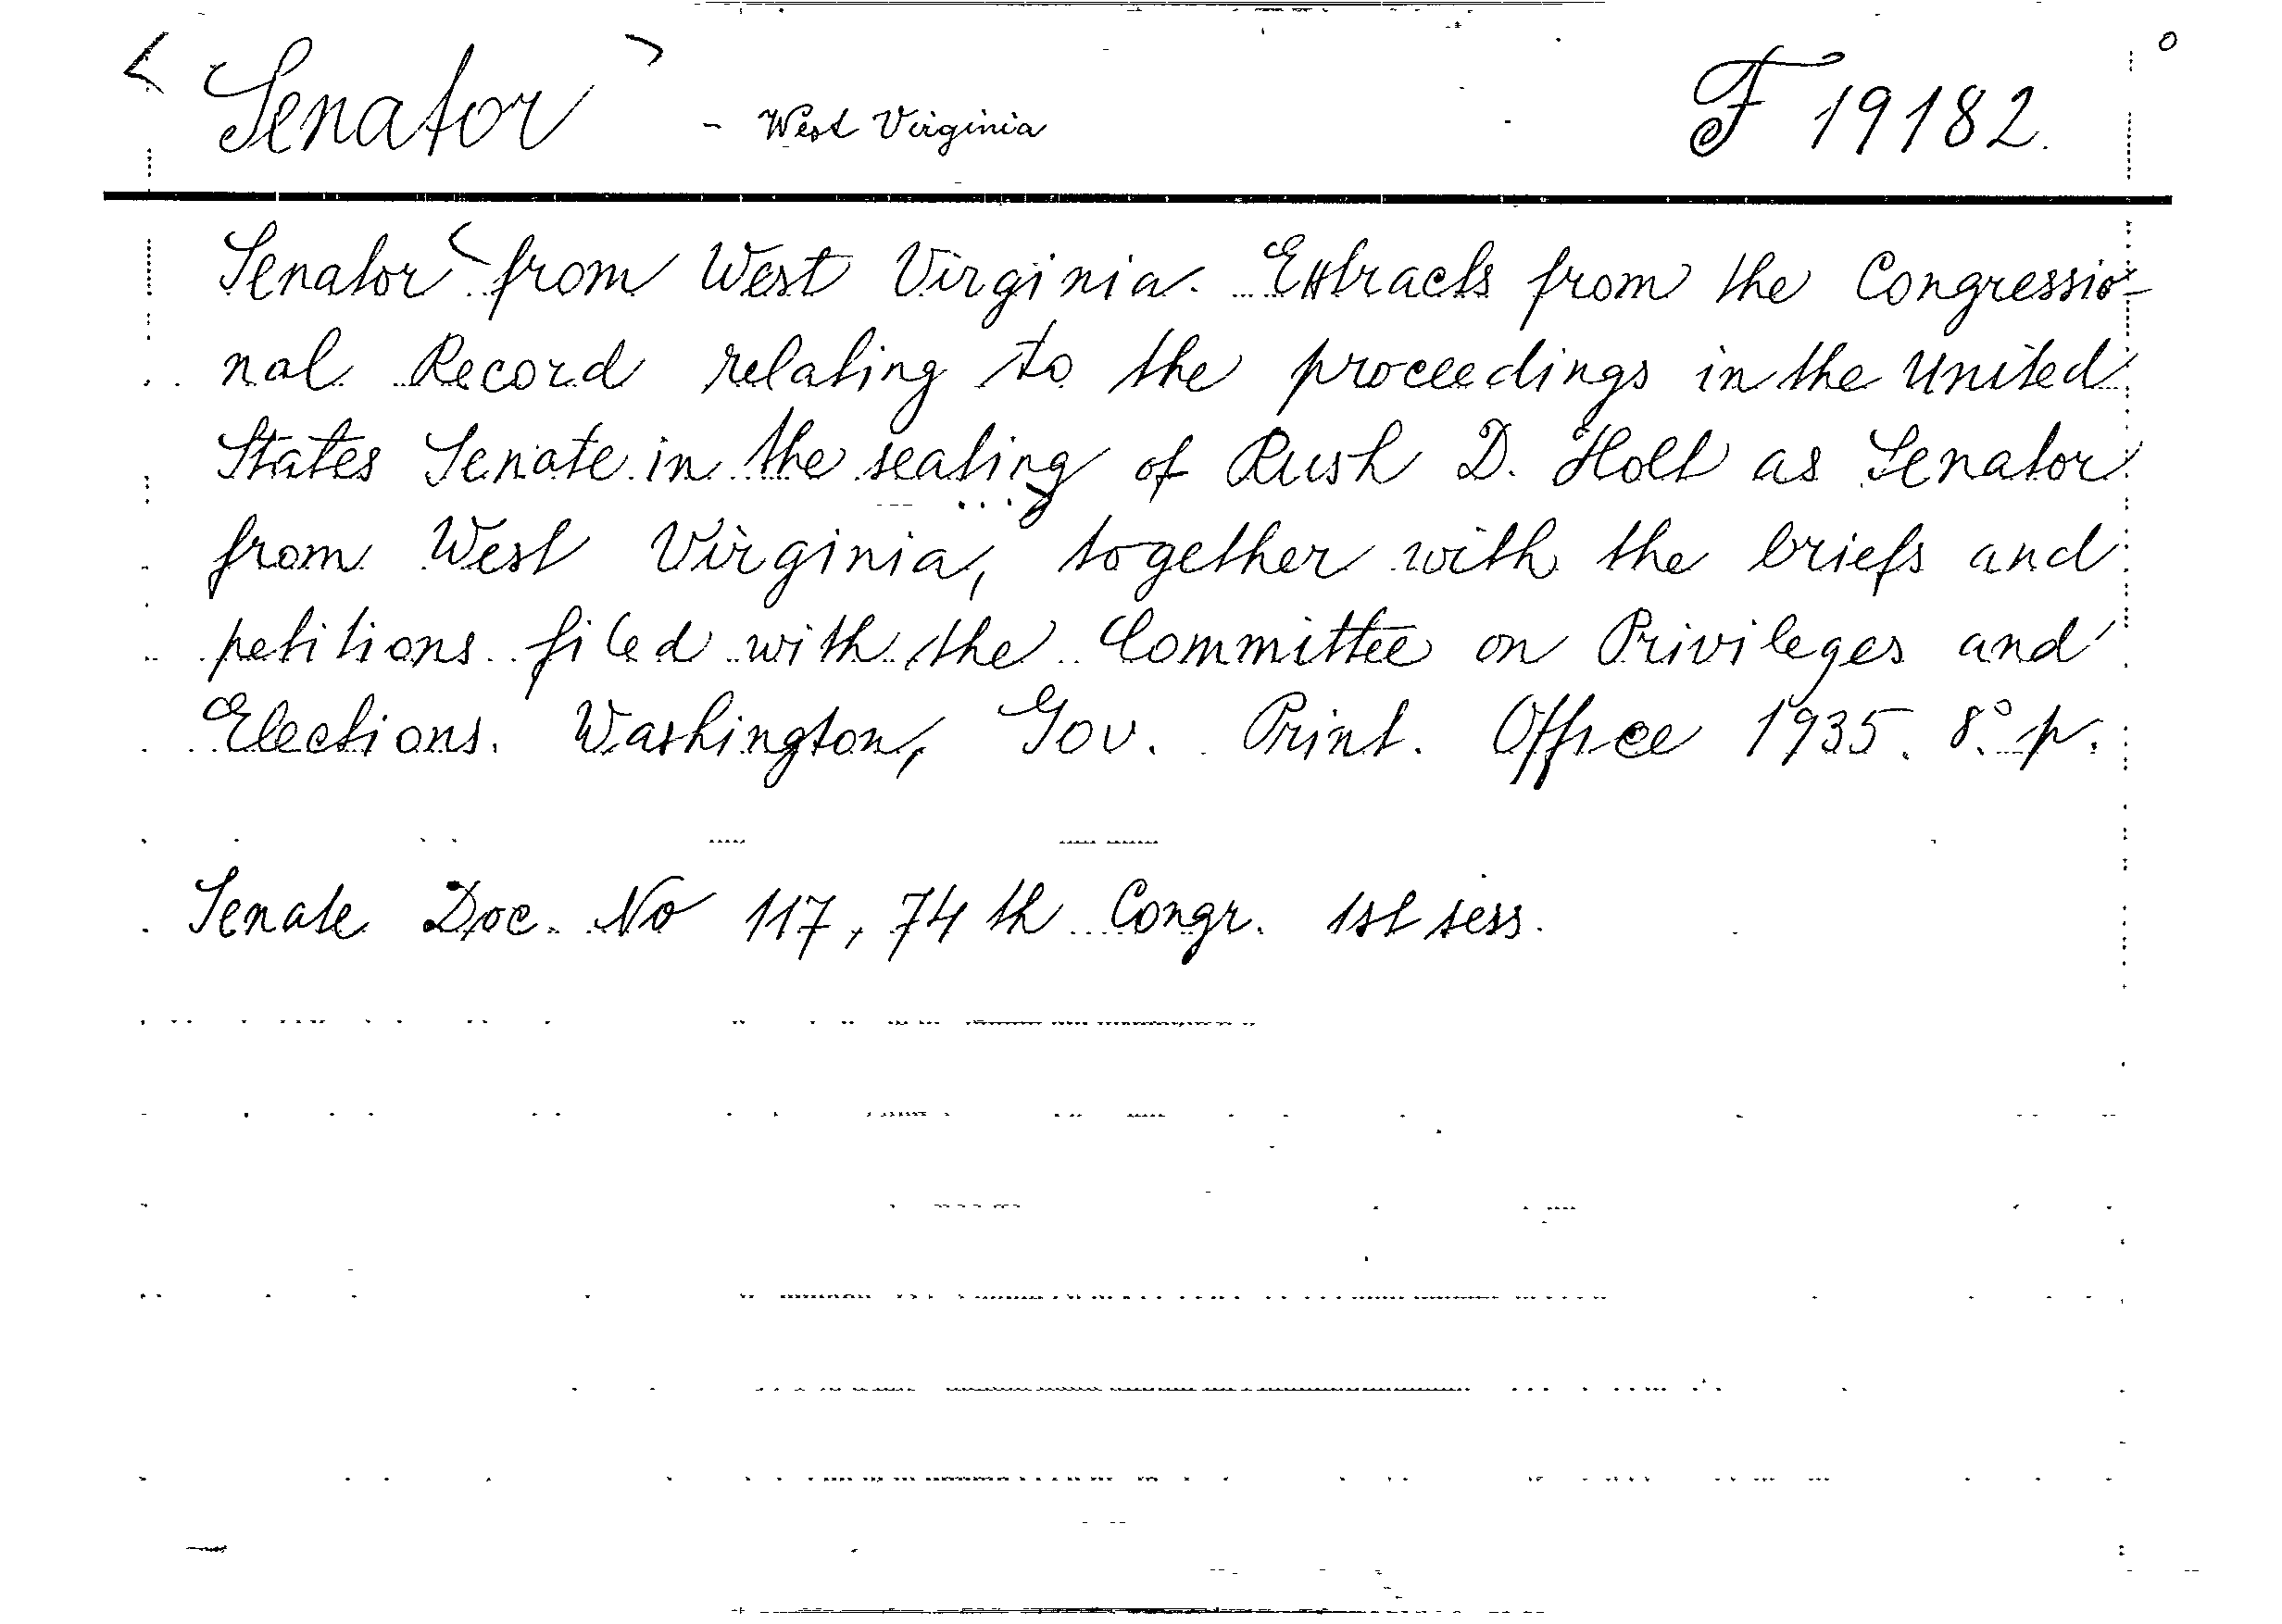 < Senator > - West Virginia F 19182.
Senator < from West Virginia. Extracts from the Congressio-
nal Record relating to the proceedings in the United
States Senate in the seating of Rush D. Holt as Senator
from West Virginia, together with the briefs and
petitions filed with the Committee on Privileges and
Elections. Washington, Gov. Print. Office 1935. 8° p.
Senate Doc. No 117, 74th Congr. 1st sess.